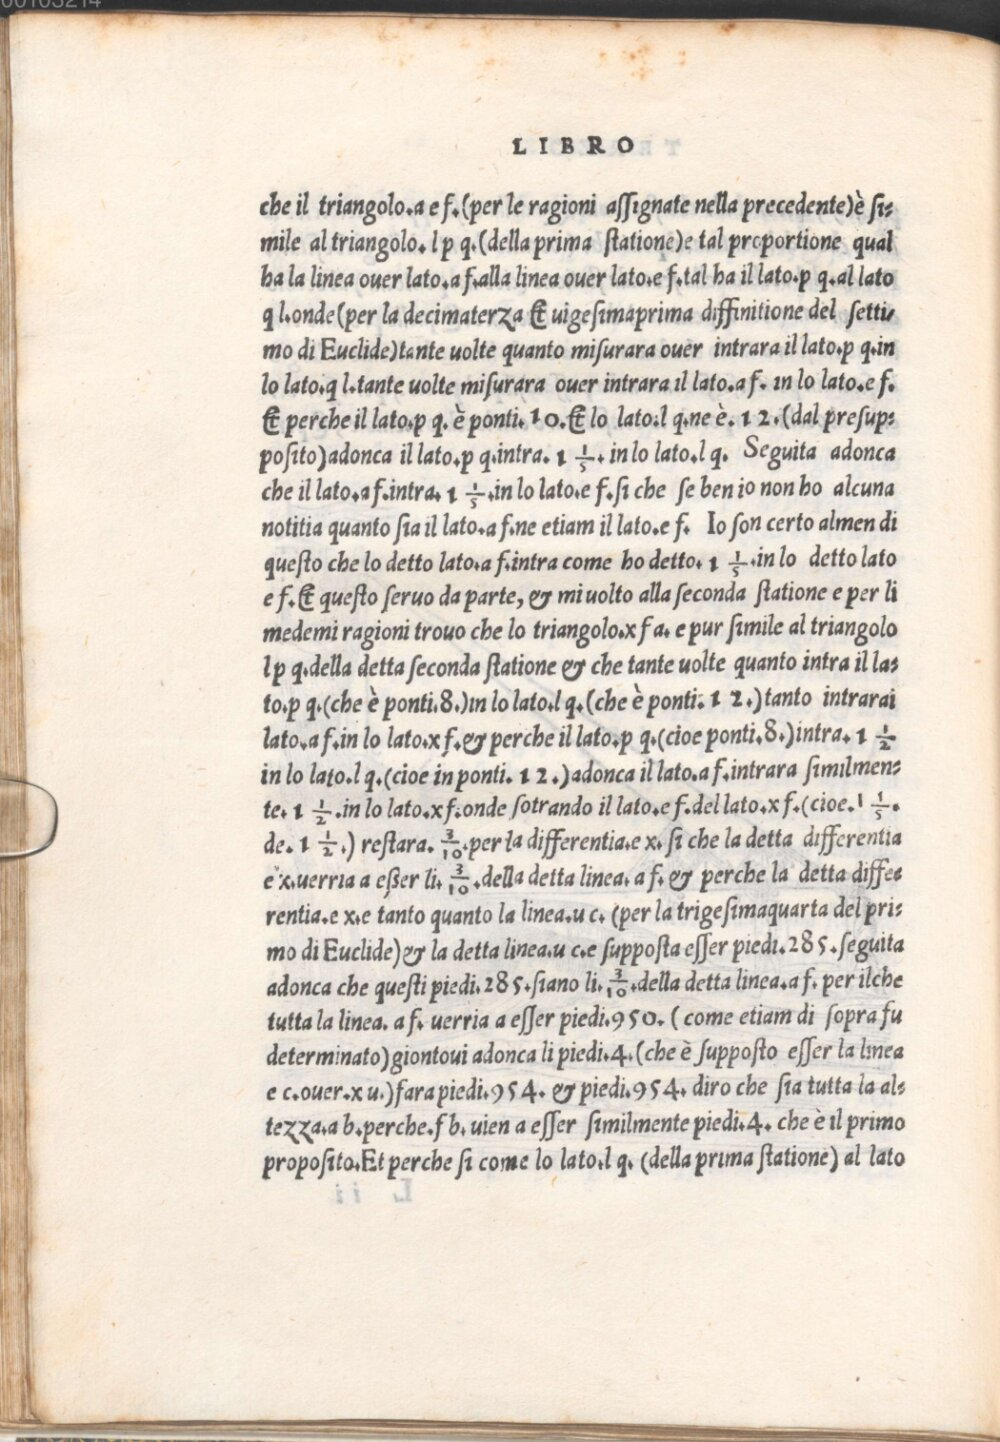 00103214
LIBRO
che il triangolo.a e f.(per le ragioni aſſignate nella precedente)è ſi=
mile al triangolo.l p q.(della prima ſtatione)e tal proportione qual
ha la linea ouer lato.a f.alla linea ouer lato.e f.tal ha il lato.p q.al lato
q l.onde(per la decimaterza & uigeſimaprima diffinitione del ſetti=
mo di Euclide)tante uolte quanto miſurara ouer intrara il lato.p q.in
lo lato.q l.tante uolte miſurara ouer intrara il lato.a f. in lo lato.e f.
& perche il lato.p q. è ponti.10.& lo lato.l q.ne è. 12.(dal preſup=
poſito)adonca il lato.p q.intra. 1 1/5. in lo lato.l q. Seguita adonca
che il lato.a f.intra. 1 1/5.in lo lato.e f.ſi che ſe ben io non ho alcuna
notitia quanto ſia il lato.a f.ne etiam il lato.e f. Io ſon certo almen di
queſto che lo detto lato.a f.intra come ho detto. 1 1/5.in lo detto lato
e f.& queſto ſeruo da parte, & mi uolto alla ſeconda ſtatione e per li
medemi ragioni trouo che lo triangolo.x f a. e pur ſimile al triangolo
l p q.della detta ſeconda ſtatione & che tante uolte quanto intra il la=
to.p q.(che è ponti.8.)in lo lato.l q.(che è ponti. 12.)tanto intrarai
lato.a f.in lo lato.x f.& perche il lato.p q.(cioe ponti.8.)intra. 1 1/2
in lo lato.l q.(cioe in ponti. 12.)adonca il lato.a f.intrara ſimilmen=
te. 1 1/2.in lo lato.x f.onde ſotrando il lato.e f.del lato.x f.(cioe.1 1/5.
de. 1 1/2.) reſtara. 3/10.per la differentia.e x. ſi che la detta differentia
e x.uerria a eßer li. 3/10.della detta linea.a f. & perche la detta diffe=
rentia.e x.e tanto quanto la linea.u c. (per la trigeſimaquarta del pri=
mo di Euclide)& la detta linea.u c.e ſuppoſta eſſer piedi.285.ſeguita
adonca che queſti piedi.285.ſiano li. 3/10.della detta linea.a f. per ilche
tutta la linea. a f. uerria a eſſer piedi.950. (come etiam di ſopra fu
determinato)giontoui adonca li piedi.4.(che è ſuppoſto eſſer la linea
e c.ouer.x u.)fara piedi.954. & piedi.954. diro che ſia tutta la al=
tezza.a b.perche.f b. uien a eſſer ſimilmente piedi.4. che è il primo
propoſito.Et perche ſi come lo lato.l q. (della prima ſtatione) al lato